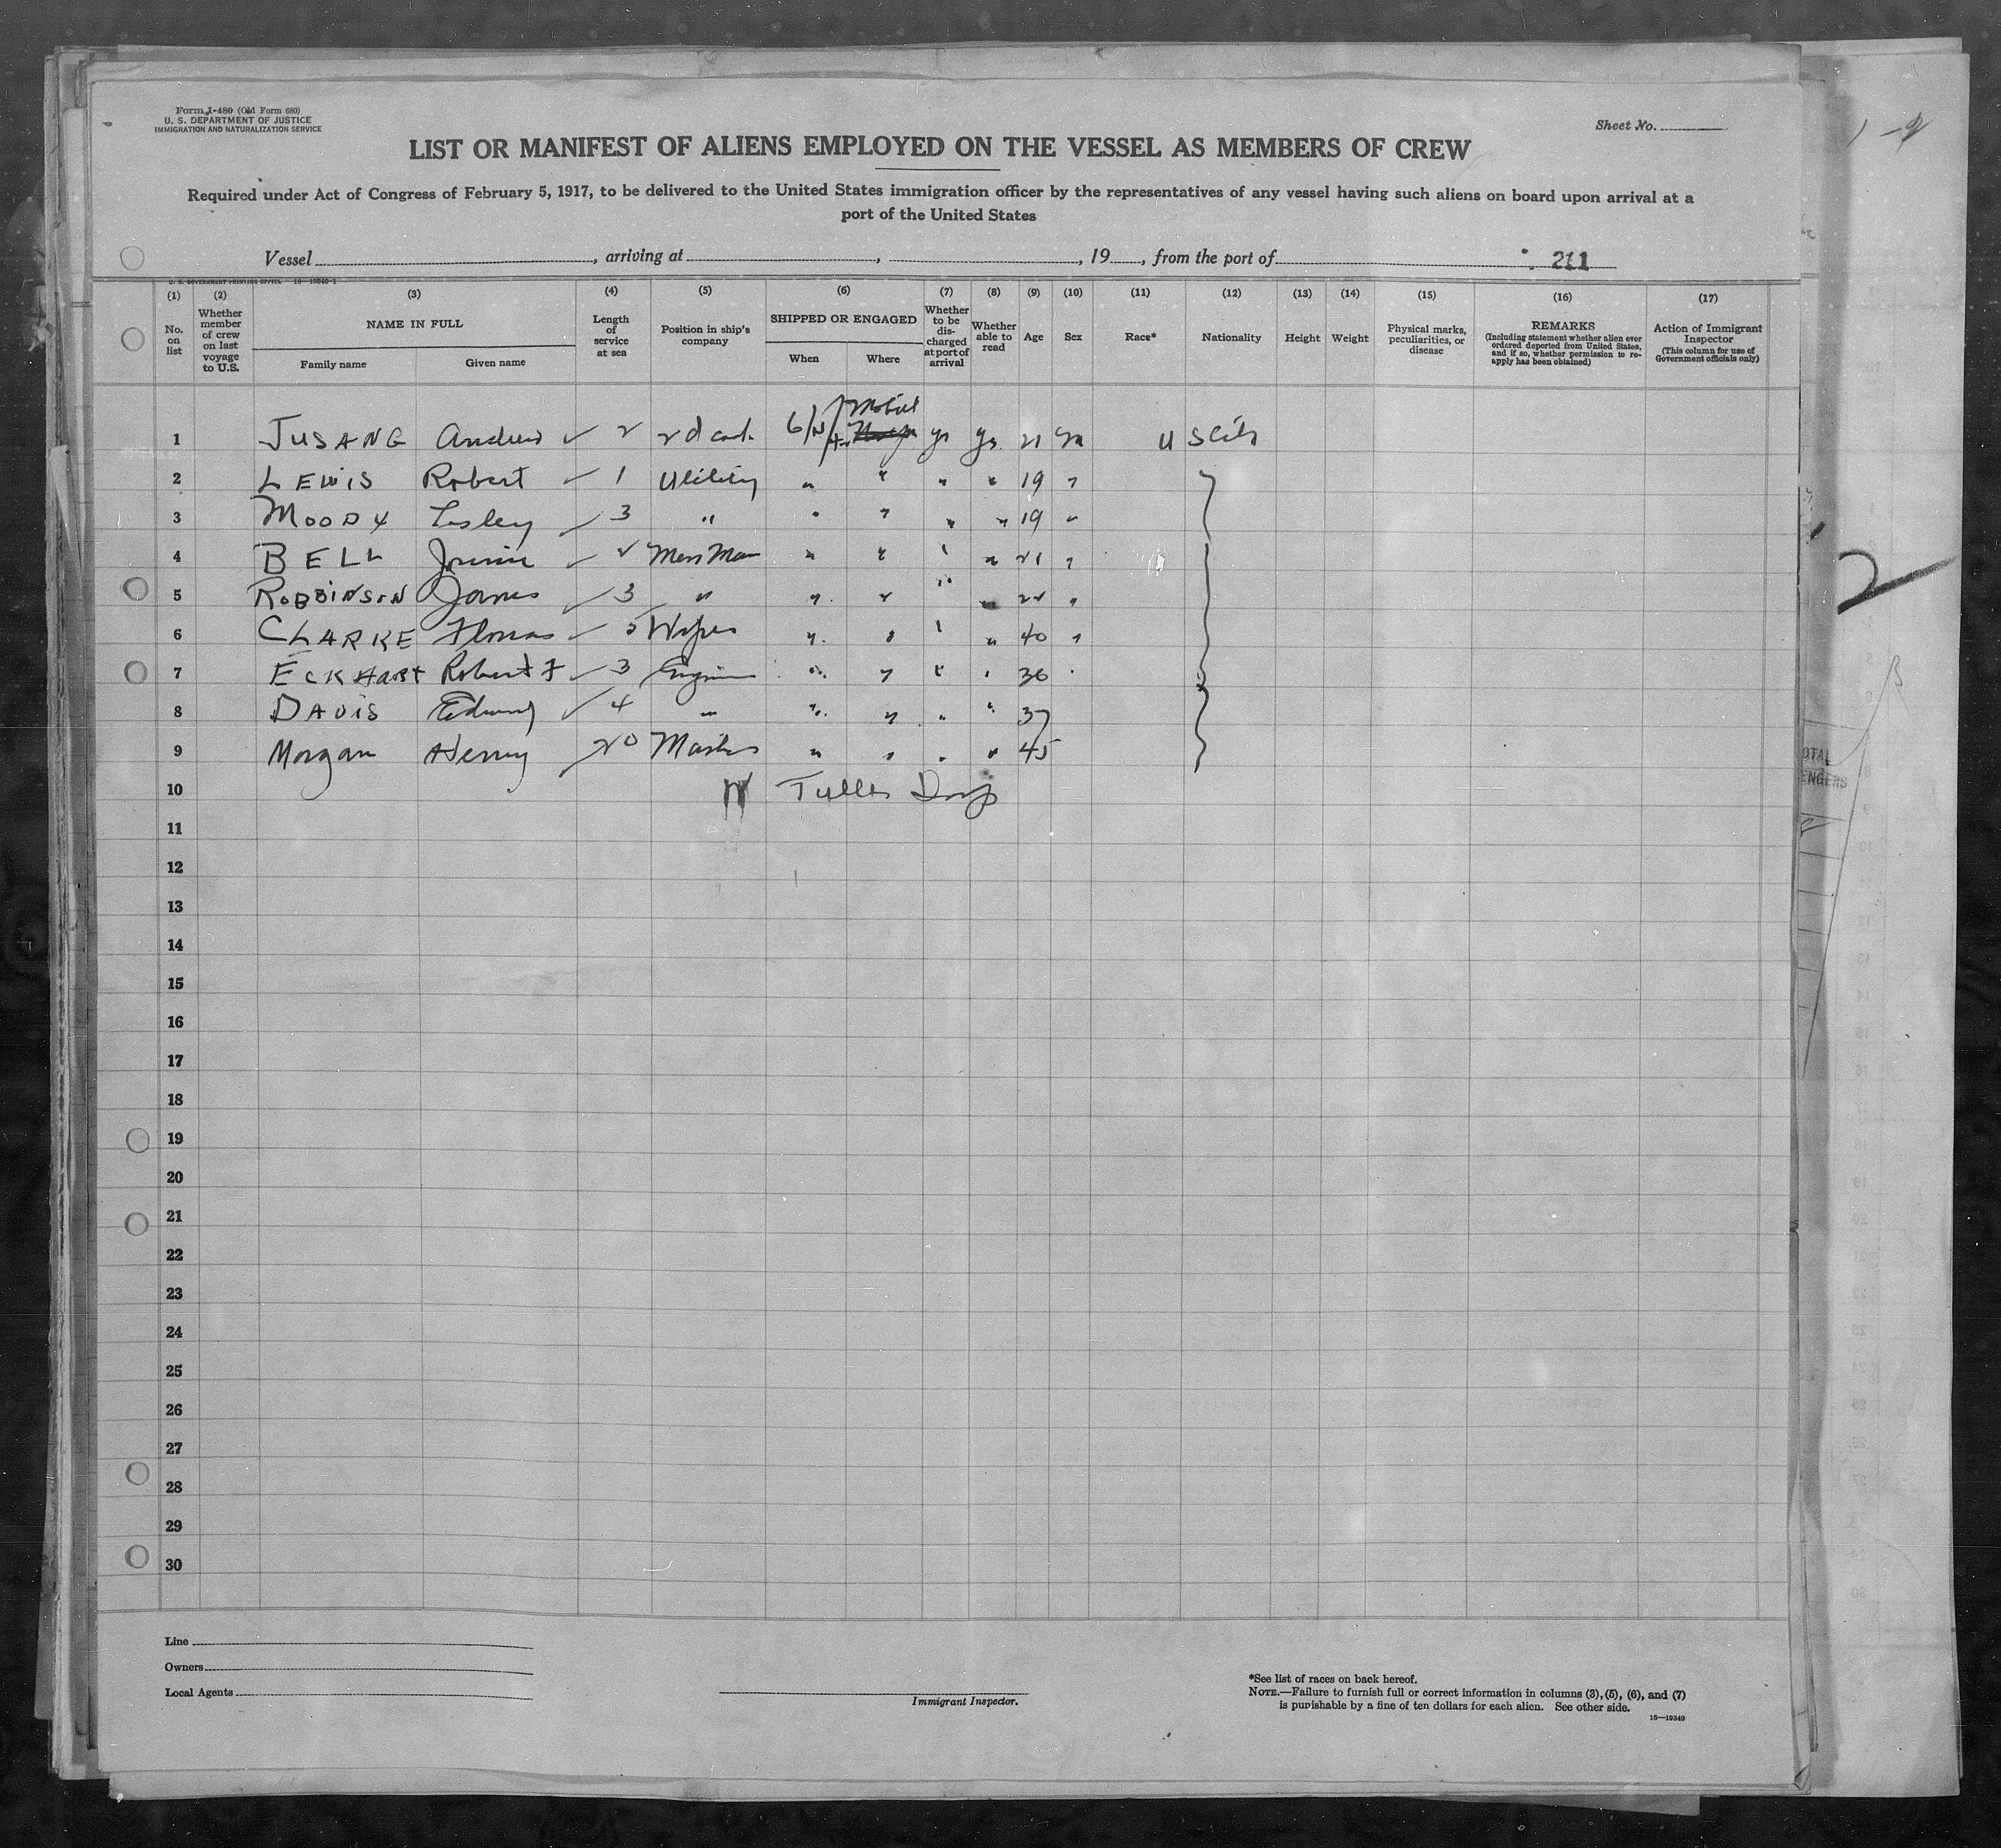 Form I-480 (Old Form 680)
U. S. DEPARTMENT OF JUSTICE
IMMIGRATION AND NATURALIZATION SERVICE
Sheet No.
LIST OR MANIFEST OF ALIENS EMPLOYED ON THE VESSEL AS MEMBERS OF CREW
Required under Act of Congress of February 5, 1917, to be delivered to the United States immigration officer by the representatives of any vessel having such aliens on board upon arrival at a
port of the United States
Vessel , arriving at , , 19 , from the port of 211
U. S. GOVERNMENT PRINTING OFFICE 16—19349-1
(1) No. on list
(2) Whether member of crew on last voyage to U.S.
(3) NAME IN FULL
Family name Given name
(4) Length of service at sea
(5) Position in ship's company
(6) SHIPPED OR ENGAGED
When Where
(7) Whether to be discharged at port of arrival
(8) Whether able to read
(9) Age
(10) Sex
(11) Race*
(12) Nationality
(13) Height
(14) Weight
(15) Physical marks, peculiarities, or disease
(16) REMARKS
(Including statement whether alien ever ordered deported from United States, and if so, whether permission to reapply has been obtained)
(17) Action of Immigrant Inspector
(This column for use of Government officials only)
1 JUSANG Andrew 2 2d cook Mobile yes yes 21 m U S Cits
2 LEWIS Robert 1 Utility " " " " 19 "
3 MOODY Lesley 3 " " " " " 19 "
4 BELL 2 Mess Man " " " " 21 "
5 ROBBINSON James 3 " " " " " 22 "
6 CLARKE Thomas 5 Wiper " " " " 40 "
7 ECKHART Robert F 3 Engineer " " " " 36 "
8 DAVIS Edward 4 " " " " " 37
9 Morgan Henry 20 Master " " " " 45
10
11
12
13
14
15
16
17
18
19
20
21
22
23
24
25
26
27
28
29
30
Line
Owners
Local Agents
Immigrant Inspector.
*See list of races on back hereof.
NOTE.—Failure to furnish full or correct information in columns (3), (5), (6), and (7)
is punishable by a fine of ten dollars for each alien. See other side.
16—19349
2